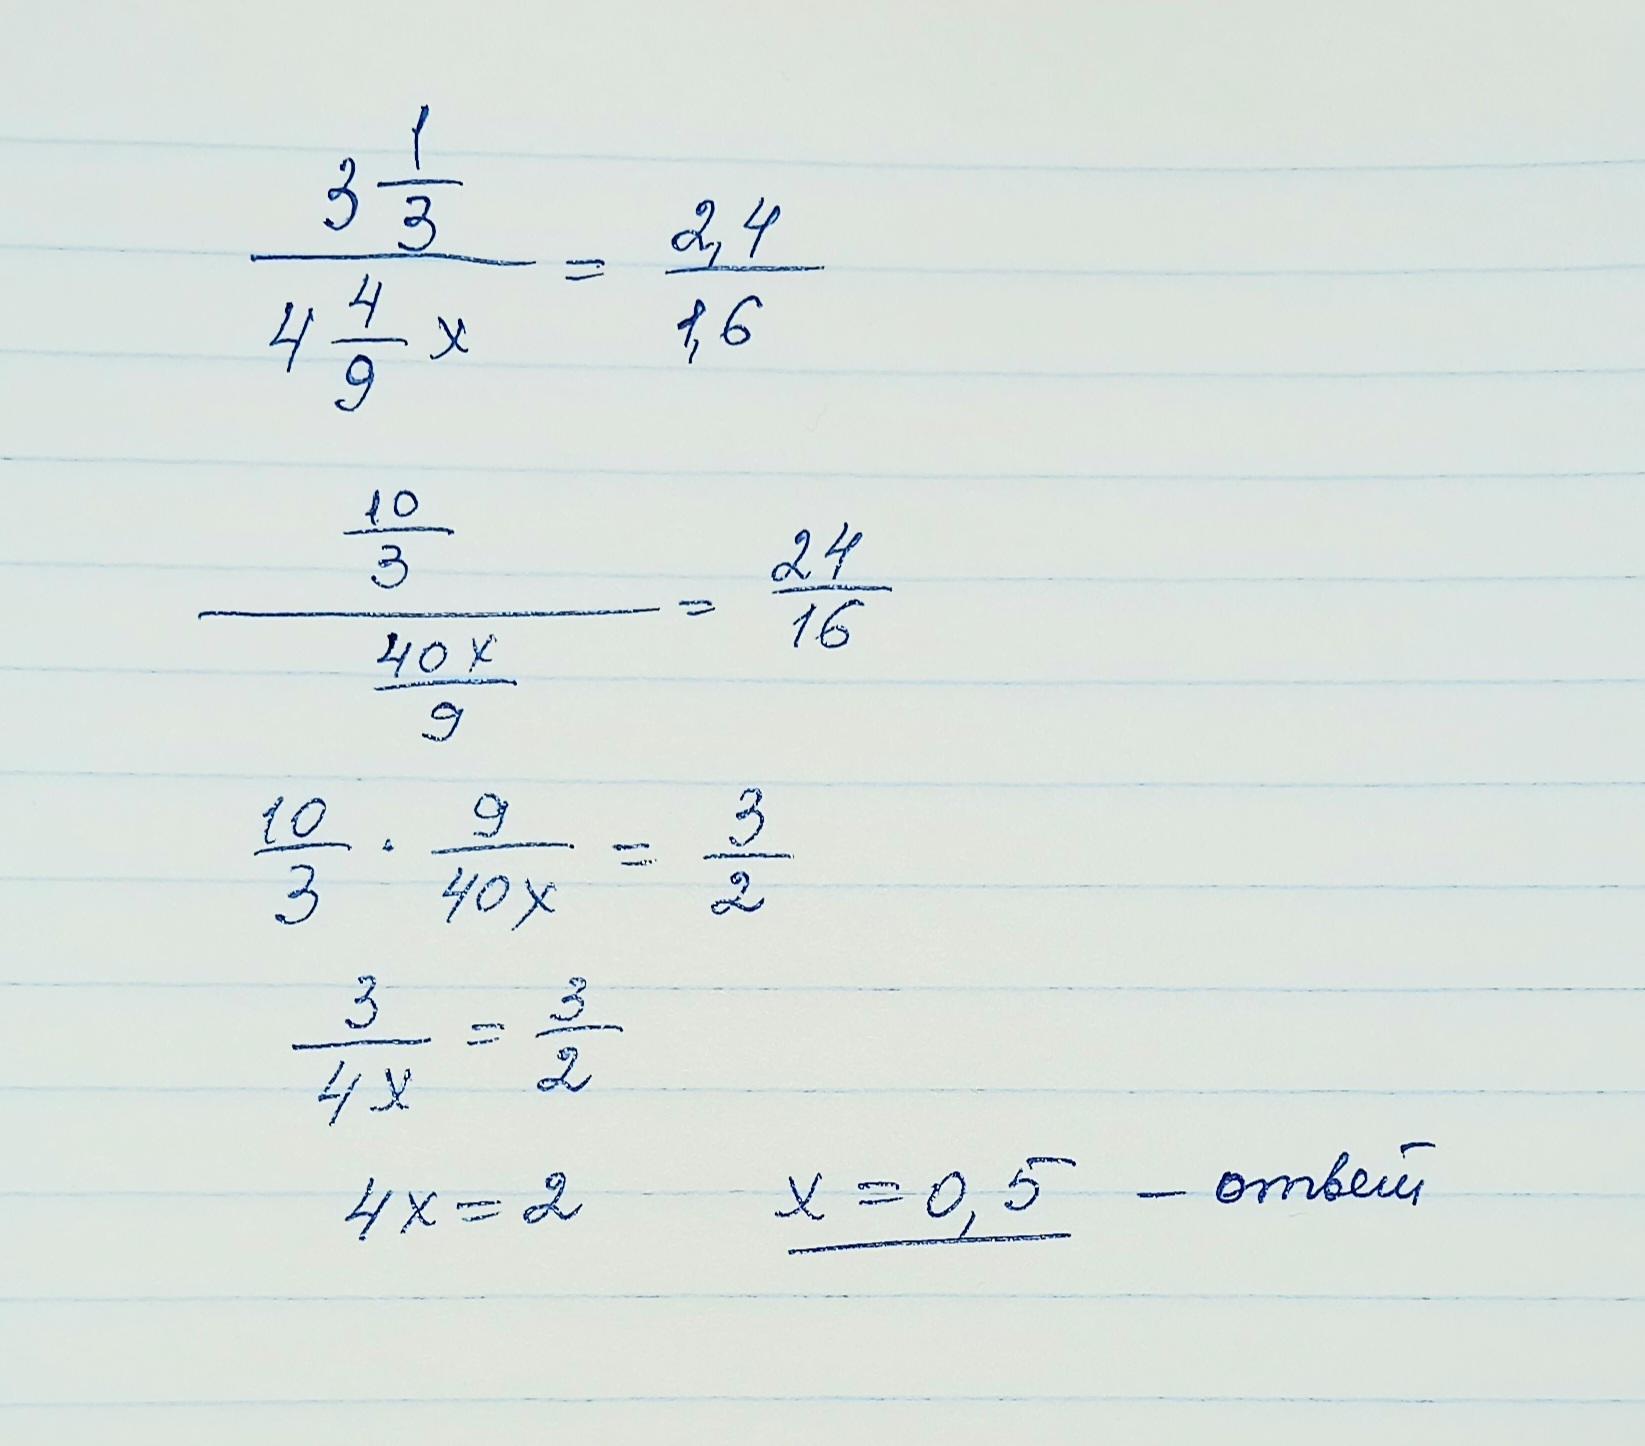 3 1/3 / 4 4/9 x = 2,4 / 1,6
10/3 / 40x/9 = 24/16
10/3 · 9/40x = 3/2
3/4x = 3/2
4x = 2 x = 0,5 – ответ